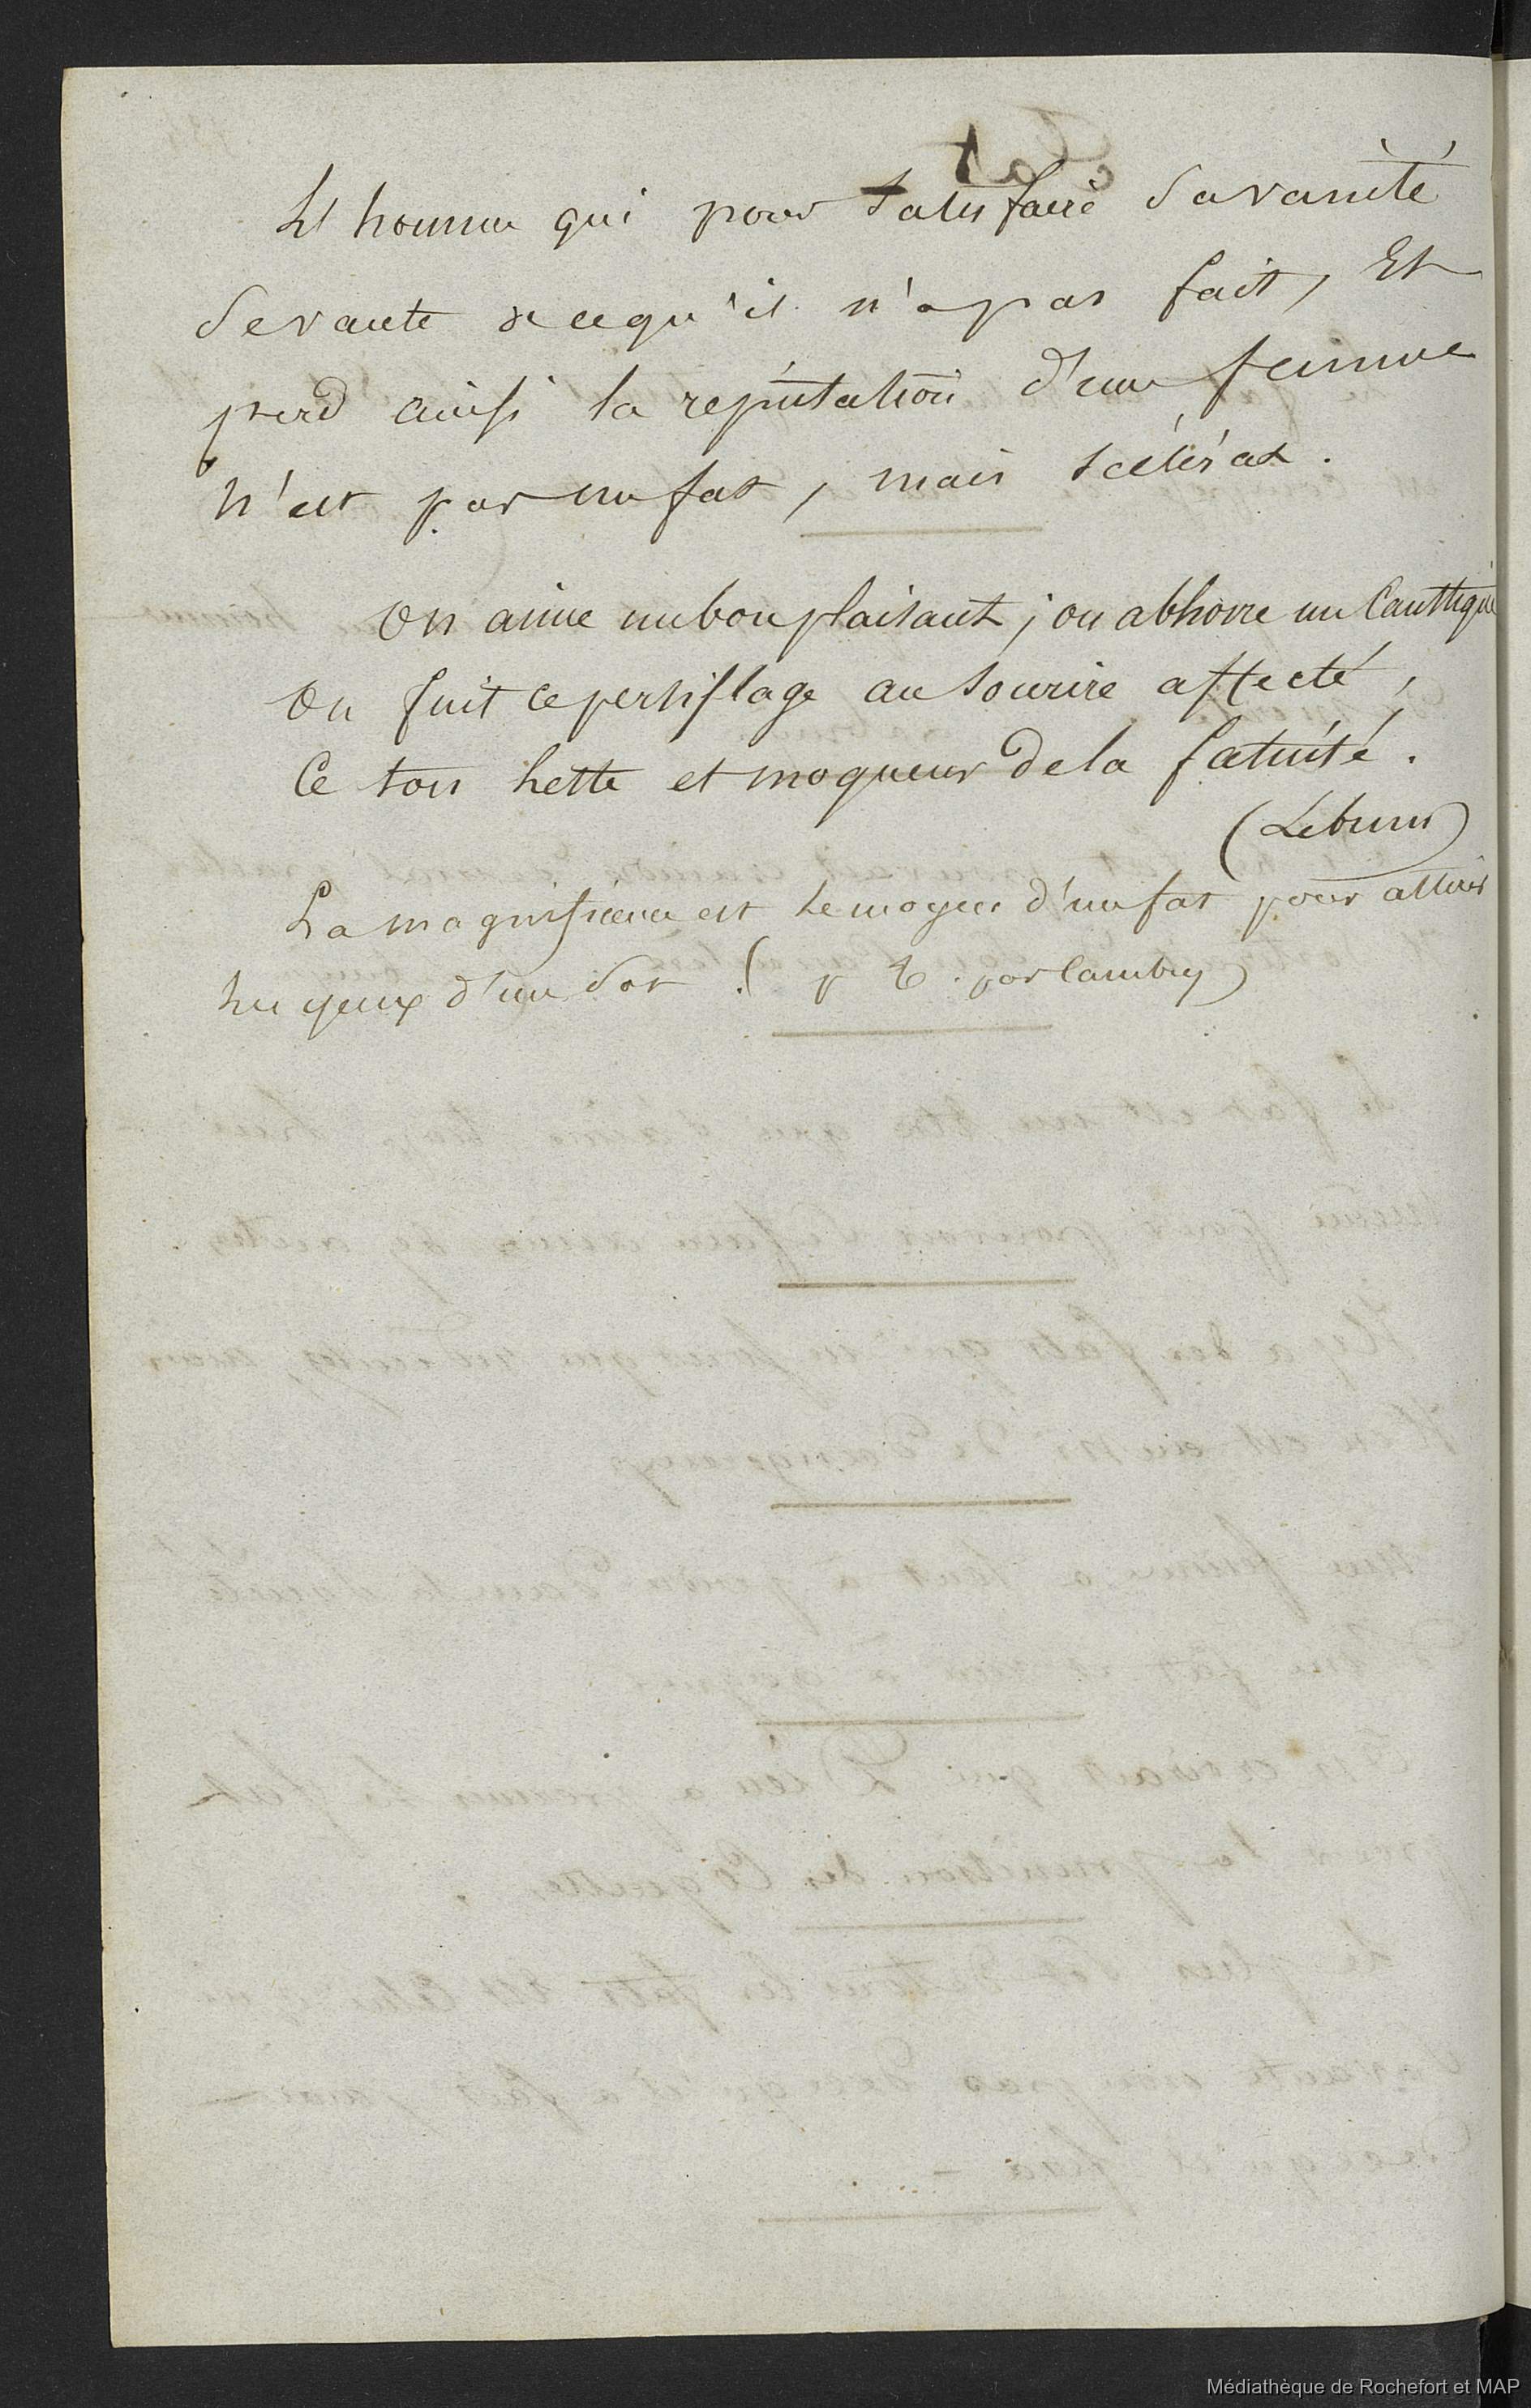 L'homme qui pour satisfaire sa vanité
se vante de ce qu'il n'a pas fait, Et
perd ainsi la réputation d'une femme
N'est pas un fat, mais scélérat.
On aime un bon plaisant; on abhorre un Caustique
On fuit ce persiflage au sourire affecté,
Ce ton leste et moqueur de la fatuité.
(Lebrun)
La magnificence est le moyen d'un fat pour attirer
les yeux d'un sot. (
Médiathèque de Rochefort et MAP